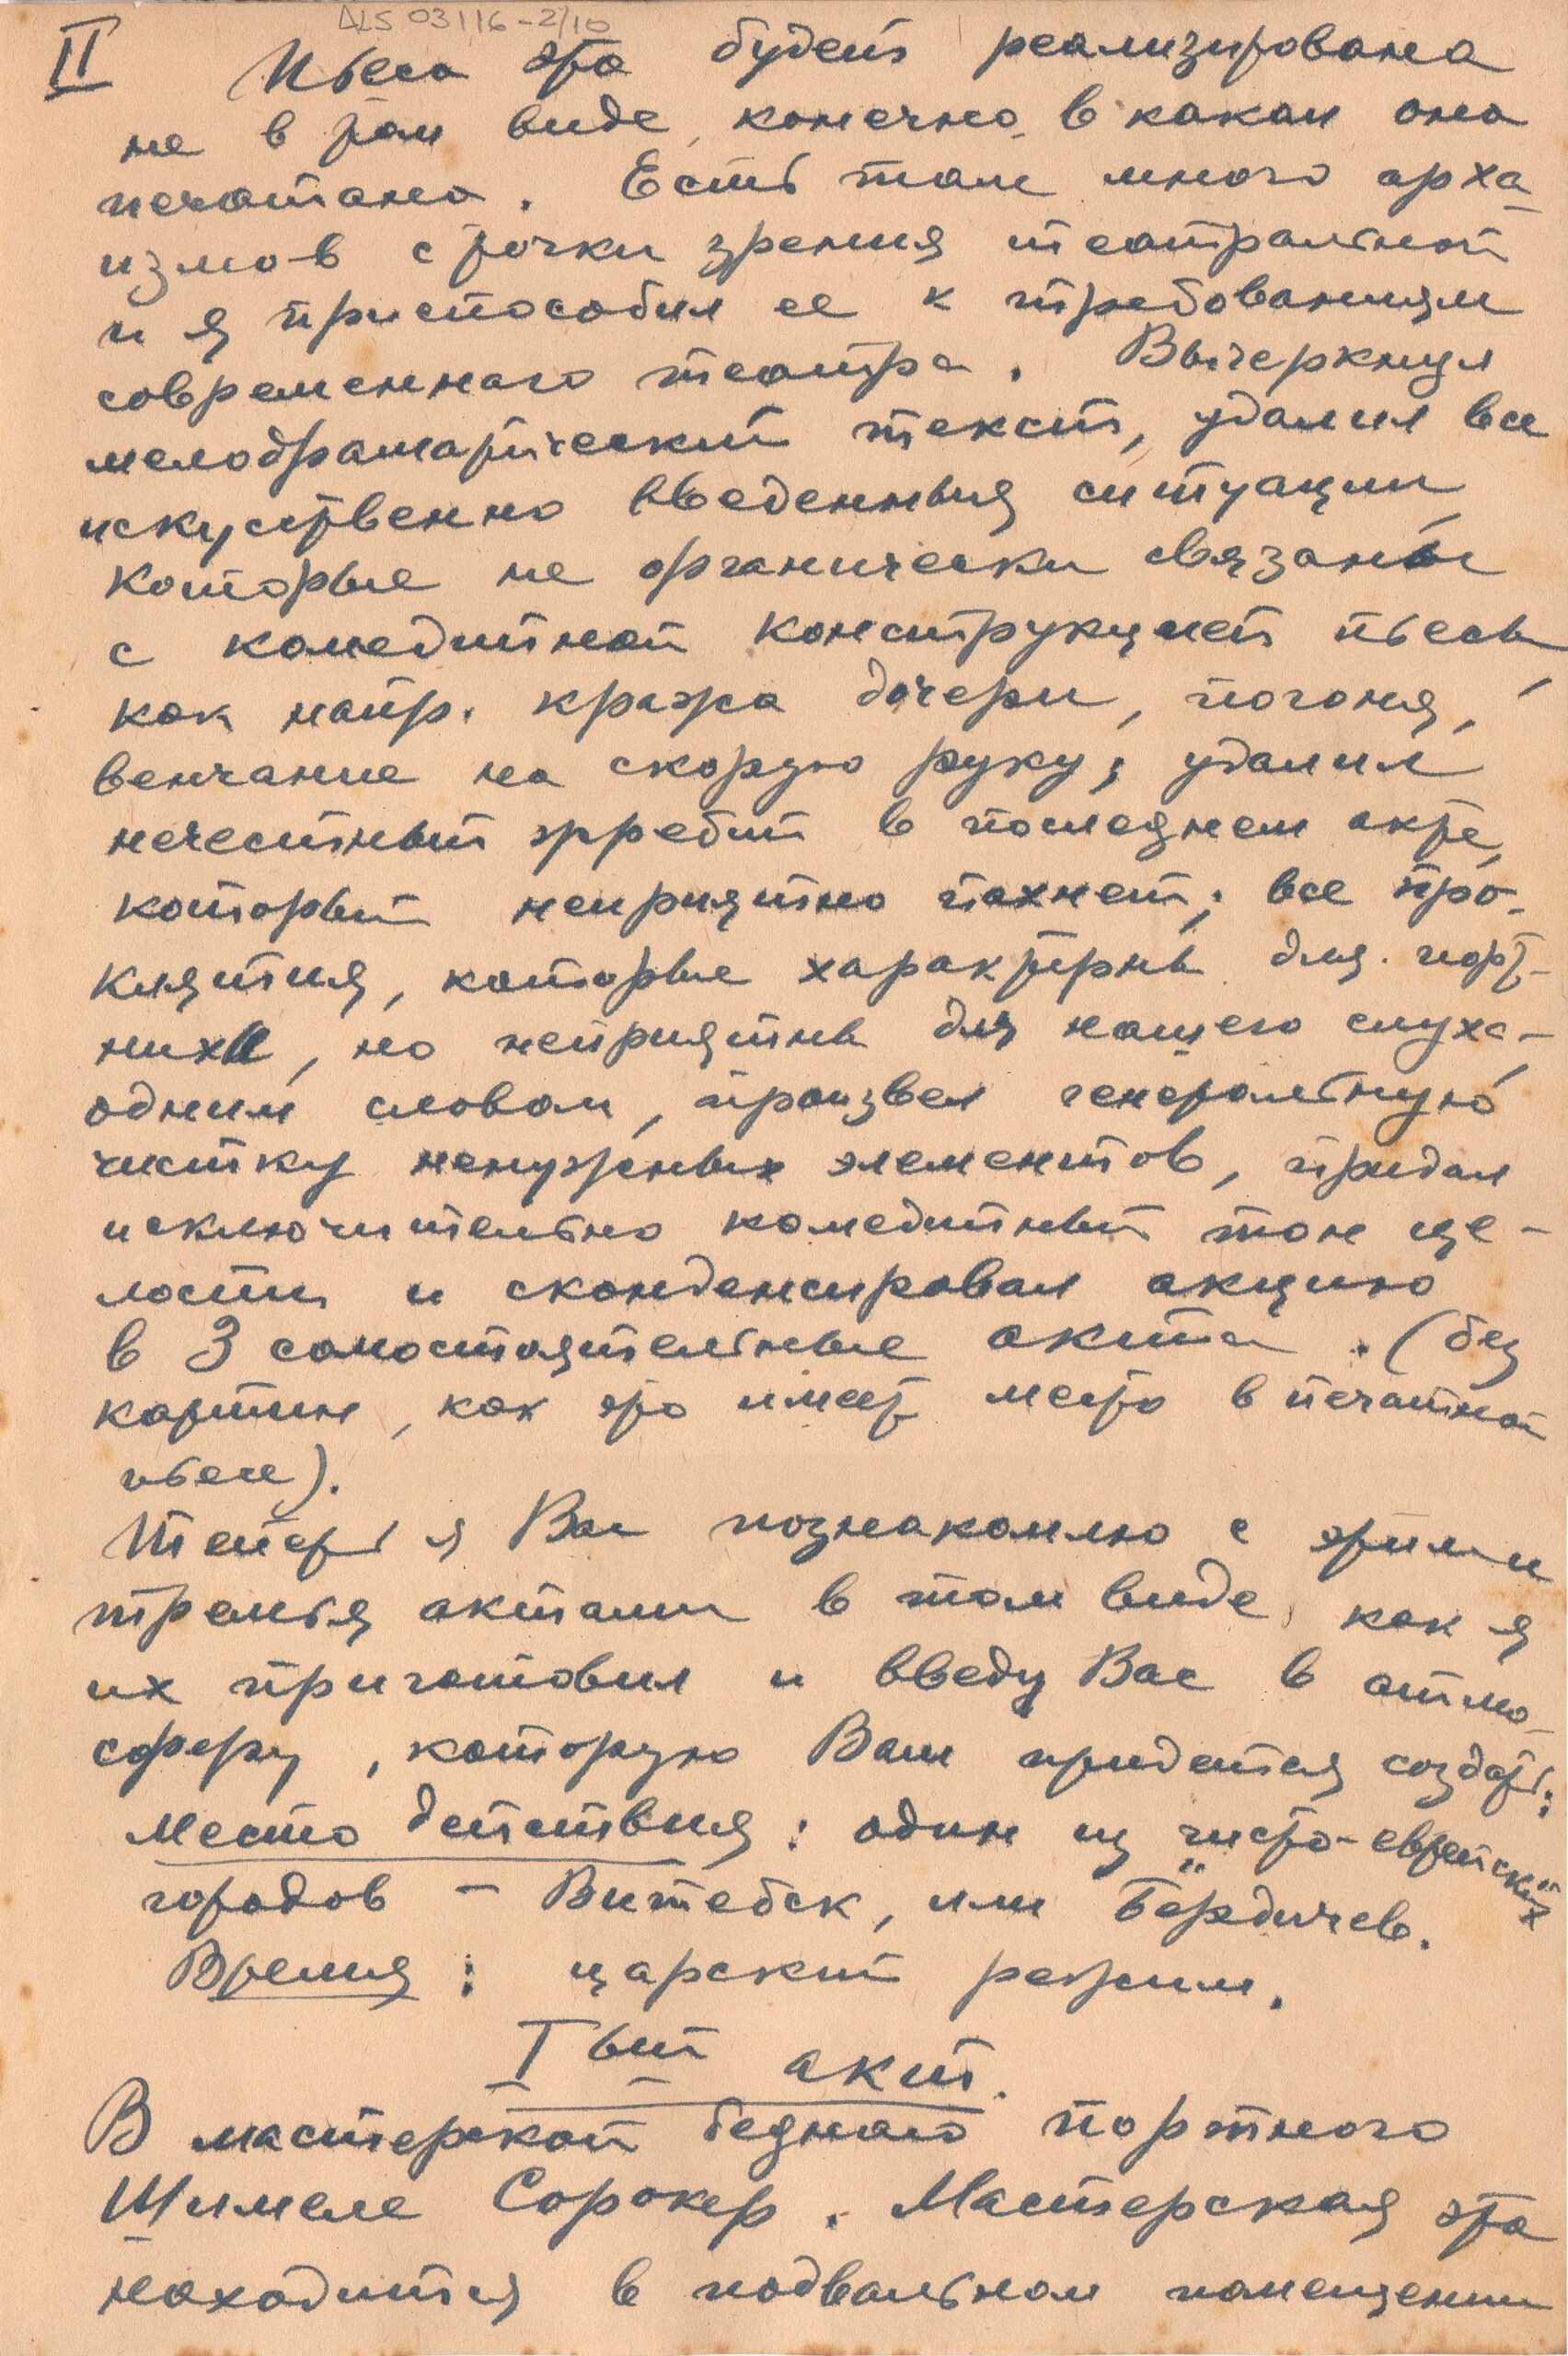 ALS 03116-2/10
II Пьеса эта будет реализирована
не в том виде, конечно, в каком она
печатана. Есть там много арха-
измов с точки зрения театральной
и я приспособил ее к требованиям
современнаго театра. Вычеркнул
мелодраматический текст, удалил все
искуственно введенныя ситуации,
которые не органически связаны
с комедийной конструкцией пьесы,
как напр. кража дочери, погоня,
венчание на скорую руку; удалил
нечестный в последнем акте,
который неприятно пахнет; все про-
клятия, которые характерны для порт-
нихи, но неприятны для нашего слуха –
одним словом, произвел генеральную
чистку ненужных элементов, придал
исключительно комедийный тон це-
лости и сконденсировал акцию
в 3 самостоятельные акта. (без
картин, как это имеет место в печатной
пьесе).
Теперь я Вас познакомлю с этими
тремья актами в том виде, как я
их приготовил и введу Вас в атмо-
сферу, которую Вам придется создать:
Место действия: один из чисто-еврейских
городов – Витебск, или Бердичев.
Время: царский режим.
Iый акт.
В мастерской беднаго портного
Шимеле Сорокер. Мастерская эта
находится в подвальном помещении